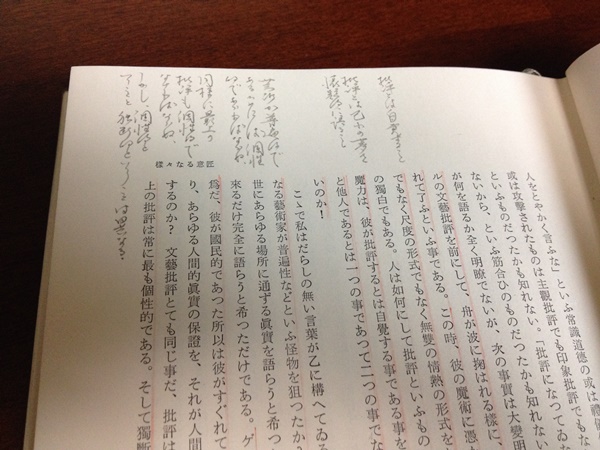 人をとやかく言ふな」といふ常識道德の或は禮儀
或は攻撃されたものは主觀批評でも印象批評でもな
といふものだつたかも知れない。「批評になつてゐな
ないから、といふ筋合ひのものだつたかも知れない
が何を語るか全く明瞭でないが、次の事實は大變明
ルの文藝批評を前にして、舟が波に掬はれる樣に、
れて了ふといふ事である。この時、彼の魔術に憑か
でもなく尺度の形式でもなく無雙の情熱の形式をと
の獨白でもある。人は如何にして批評といふもの
魔力は、彼が批評するとは自覺する事である事を
と他人であるとは一つの事であつて二つの事でな
いのか!
こゝで私はだらしの無い言葉が乙に構へてゐる
なる藝術家が普遍性などといふ怪物を狙つたか?
世にあらゆる場所に通ずる眞實を語らうと希つた
來るだけ完全に語らうと希つただけである。ゲ
爲だ、彼が國民的であつた所以は彼がすぐれて
り、あらゆる人間的眞實の保證を、それが人間
するのか? 文藝批評とても同じ事だ、批評は
上の批評は常に最も個性的である。そして獨斷
樣々なる意匠
批評とは自覚すること
批評とは己れの夢を
懐疑的に語ること
芸術が普遍的で
同様に最上の
批評も個性的で
なければならぬ。
しかし、個性的で
あることと独断的ということは異なる